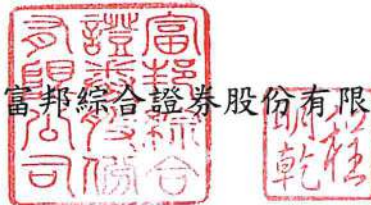 富邦綜合證券股份有限
富邦綜合
證券股份
有限公司
程
明乾